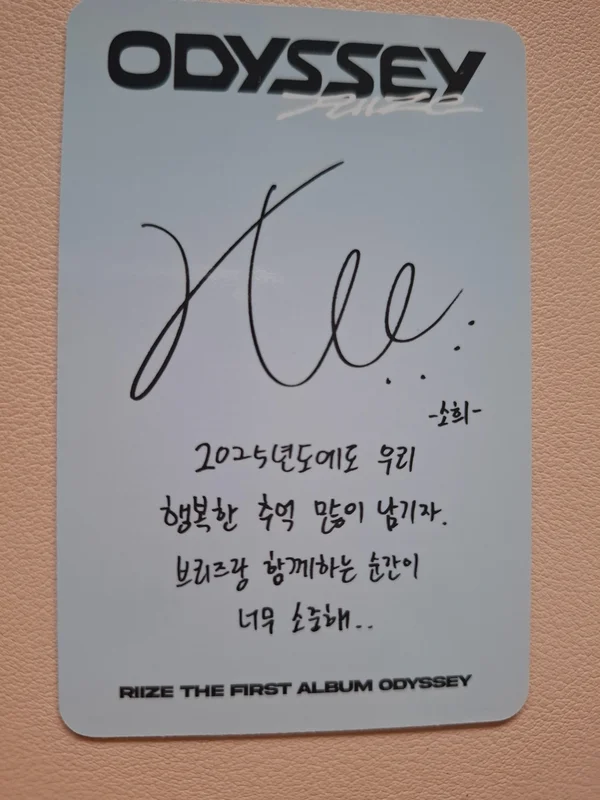 ODYSSEY
RIIZE
Hee
-소희-
2025년도에도 우리
행복한 추억 많이 남기자.
브리즈랑 함께하는 순간이
너무 소중해..
RIIZE THE FIRST ALBUM ODYSSEY